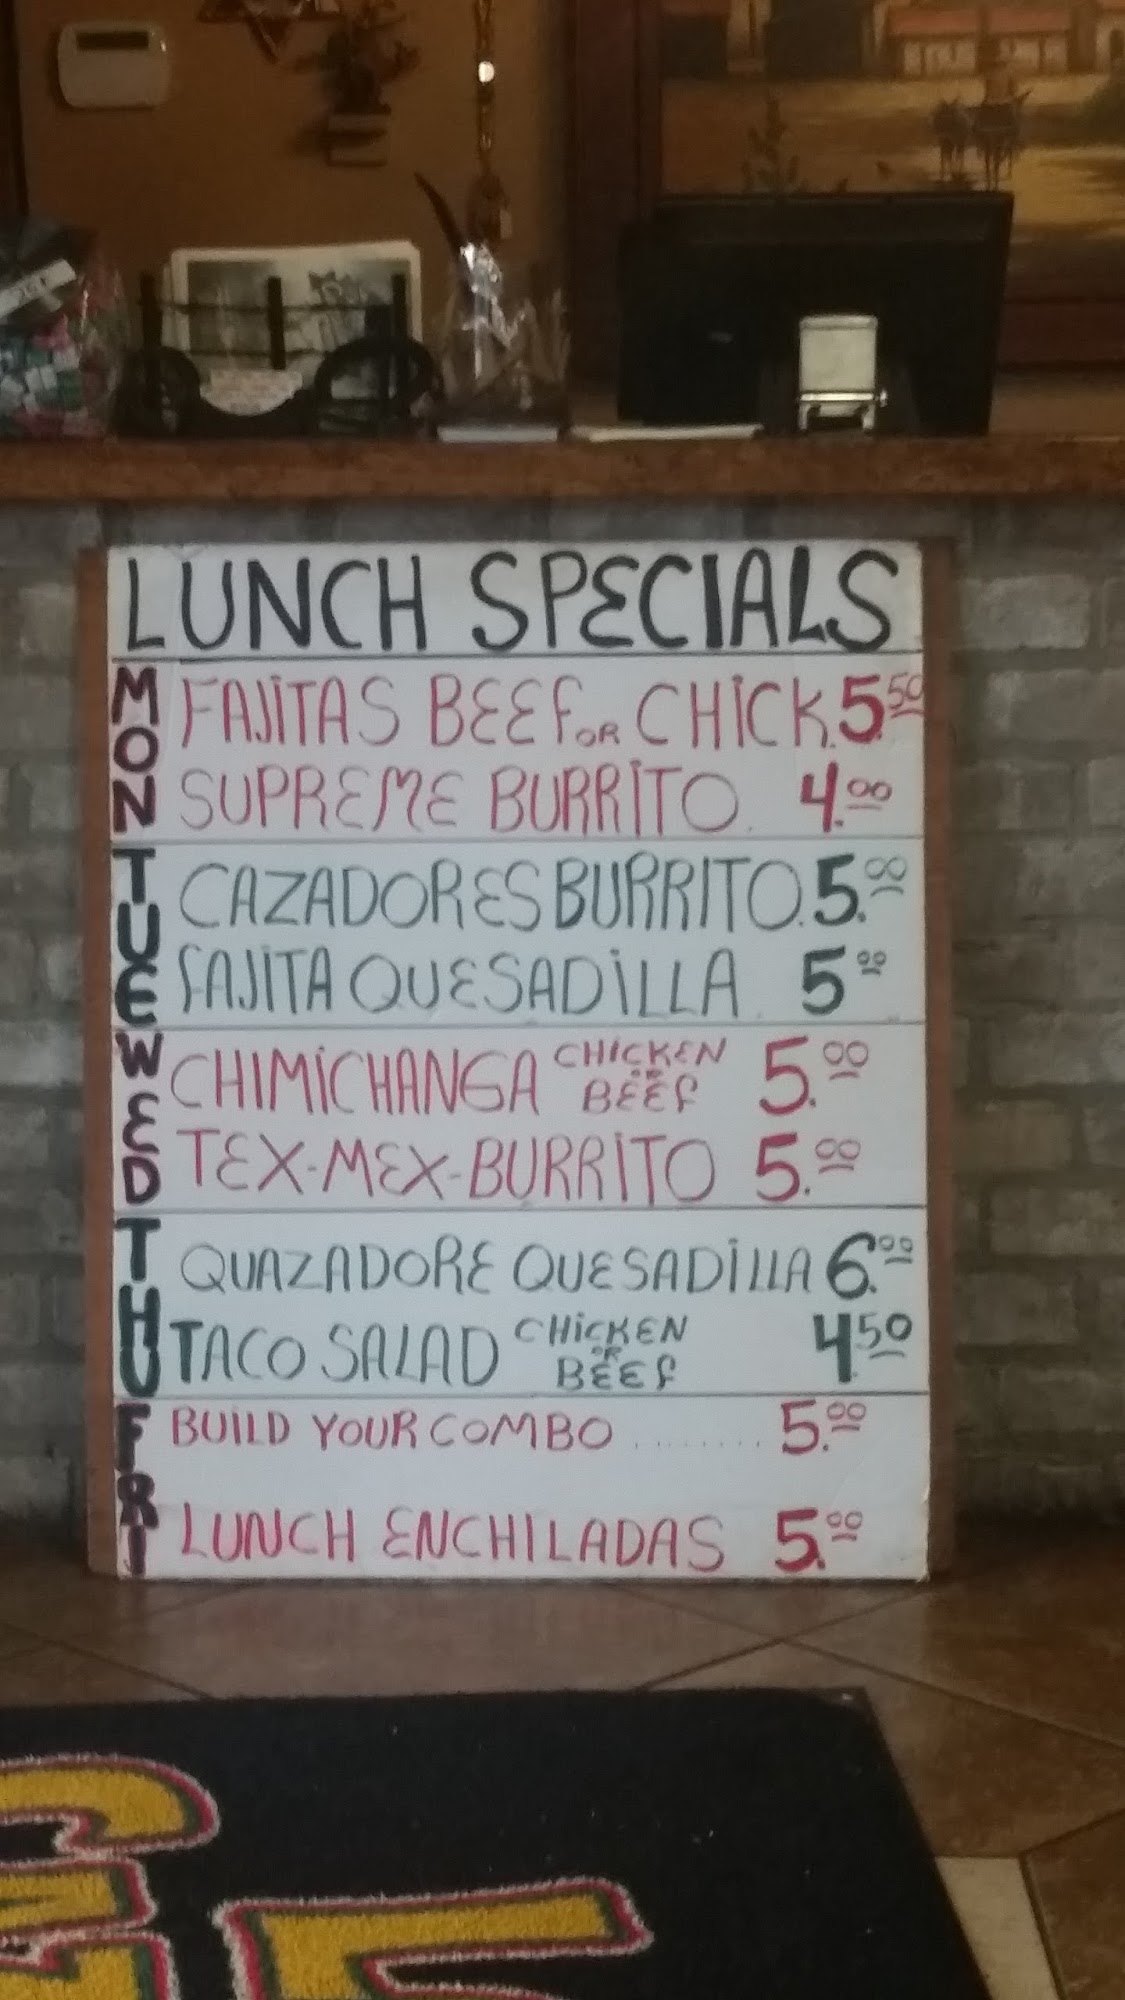 LUNCH SPECIALS
MON
FAJITAS BEEF OR CHICK. 5.50
SUPREME BURRITO. 4.00
TUE
CAZADORES BURRITO. 5.00
FAJITA QUESADILLA. 5.00
WED
CHIMICHANGA CHICKEN OR BEEF 5.00
TEX-MEX-BURRITO 5.00
THU
QUAZADORE QUESADILLA 6.00
TACO SALAD CHICKEN OR BEEF 4.50
FRI
BUILD YOUR COMBO ........ 5.00
LUNCH ENCHILADAS 5.00